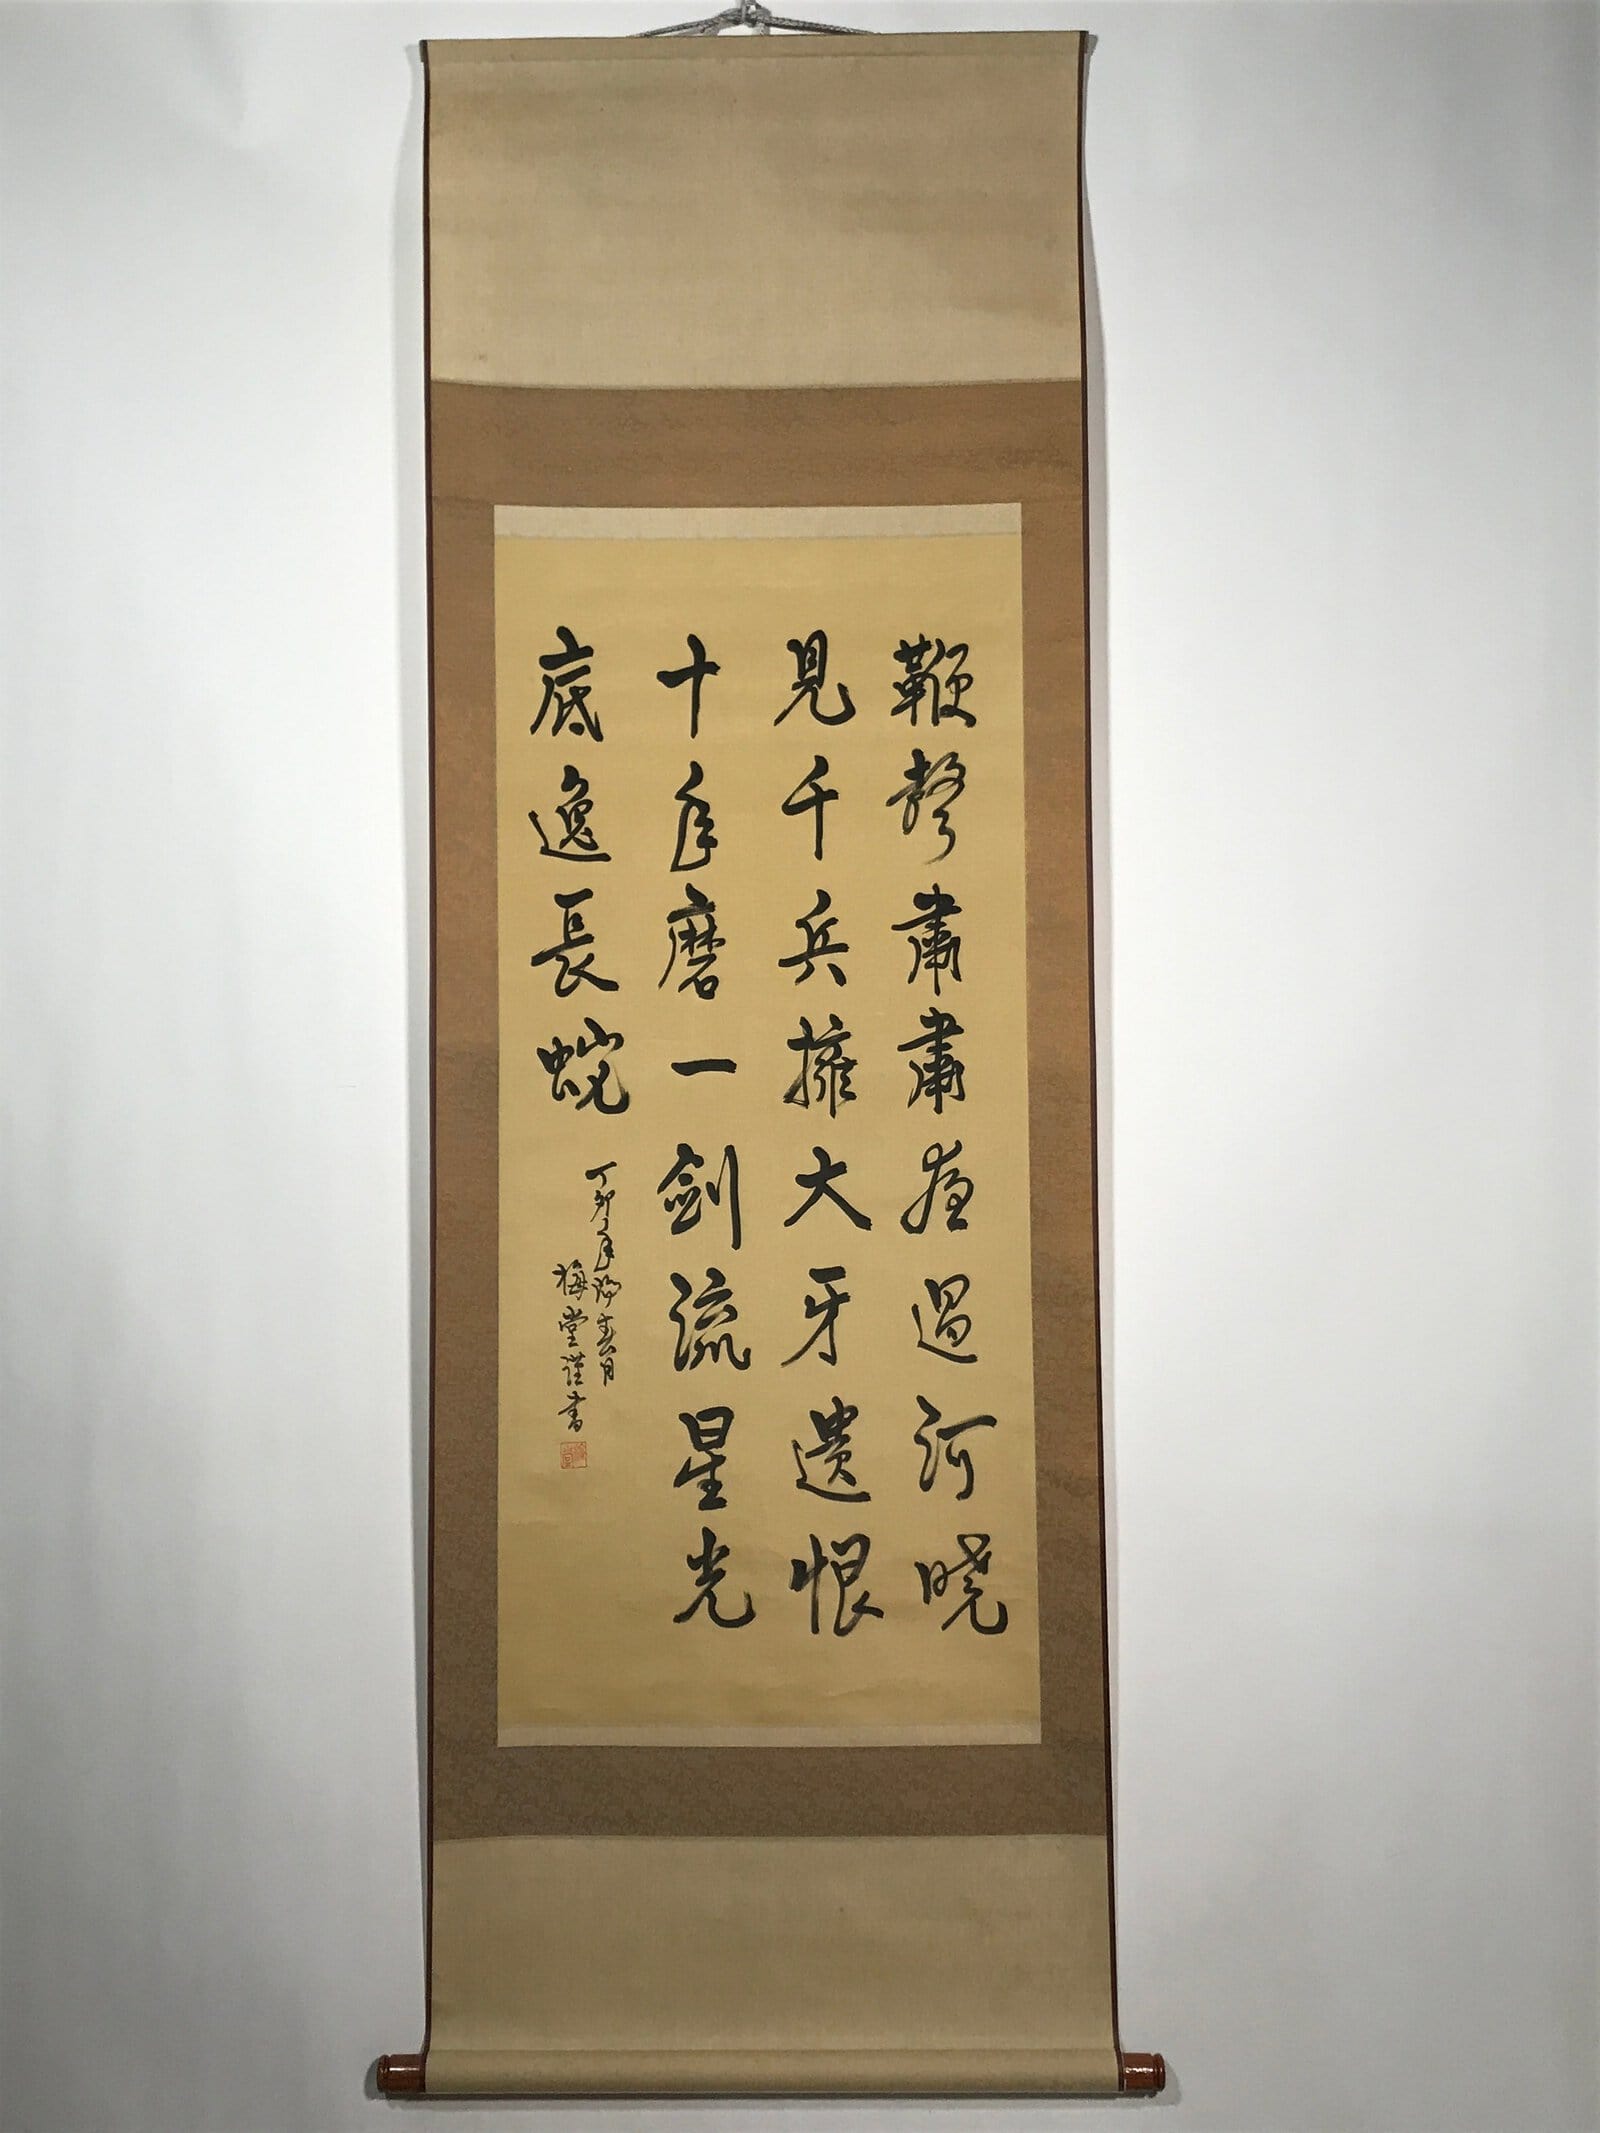 鞭聲肅肅夜過河曉
見千兵擁大牙遺恨
十年磨一剣流星光
底逸長蛇
丁卯年陽春月
梅堂謹書